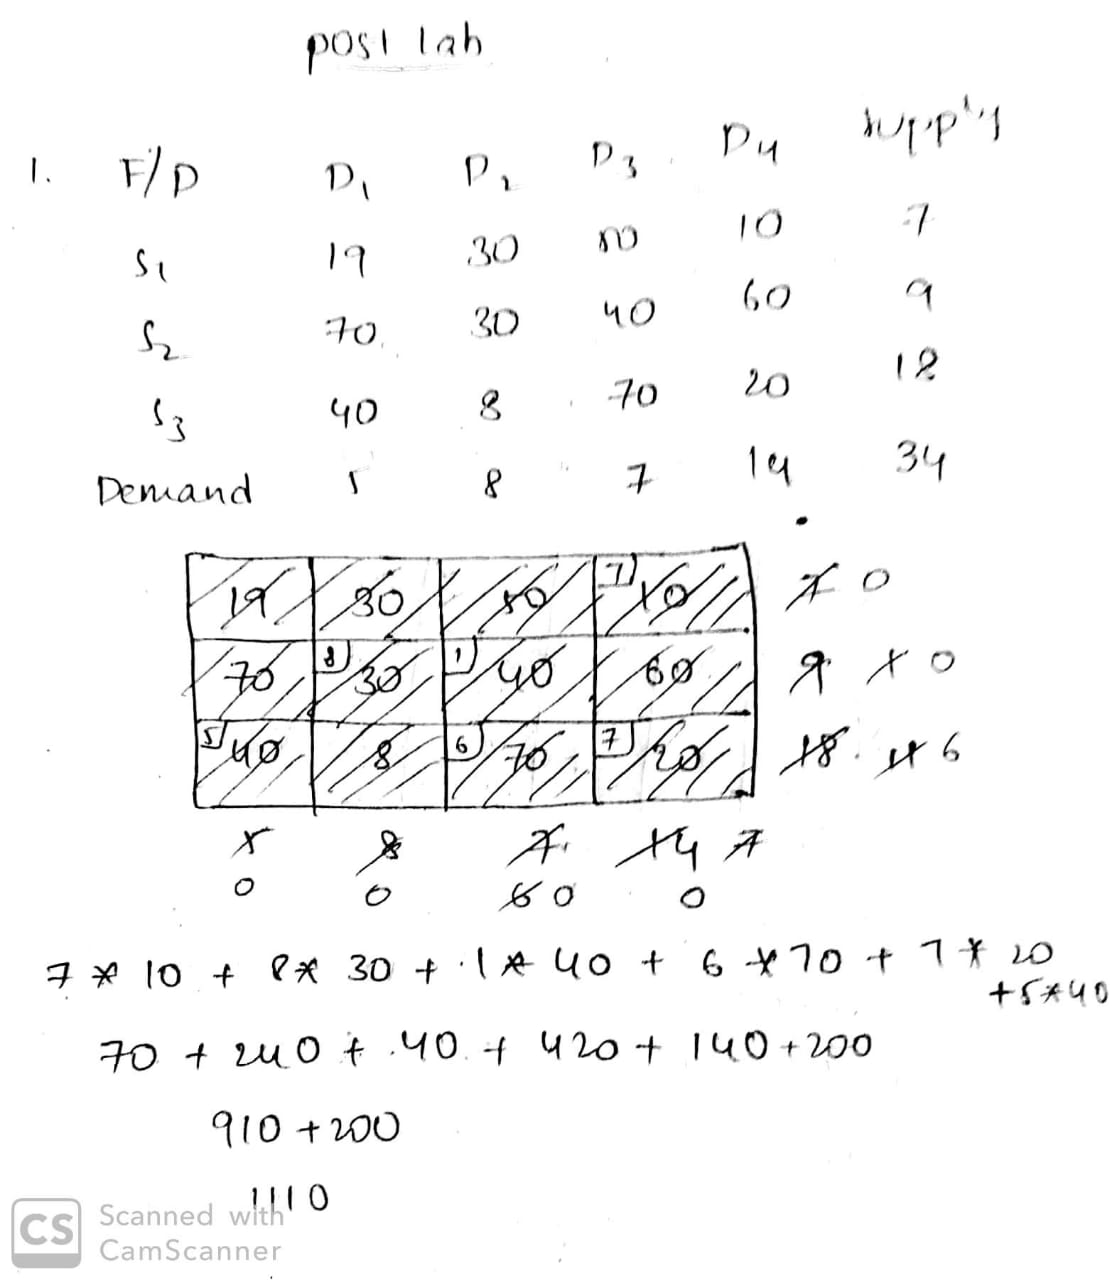 post lab
1. F/D D1 D2 D3 D4 supply
S1 19 30 50 10 7
S2 70 30 40 60 9
S3 40 8 70 20 18
Demand 5 8 7 14 34
19 30 50 7 10 7 0
70 8 30 1 40 60 9 1 0
5 40 8 6 70 7 20 18 11 6
5 8 7 14 7
0 0 6 0 0
7 * 10 + 8 * 30 + 1 * 40 + 6 * 70 + 7 * 20
+ 5 * 40
70 + 240 + 40 + 420 + 140 + 200
910 + 200
1110
CS Scanned with
CamScanner